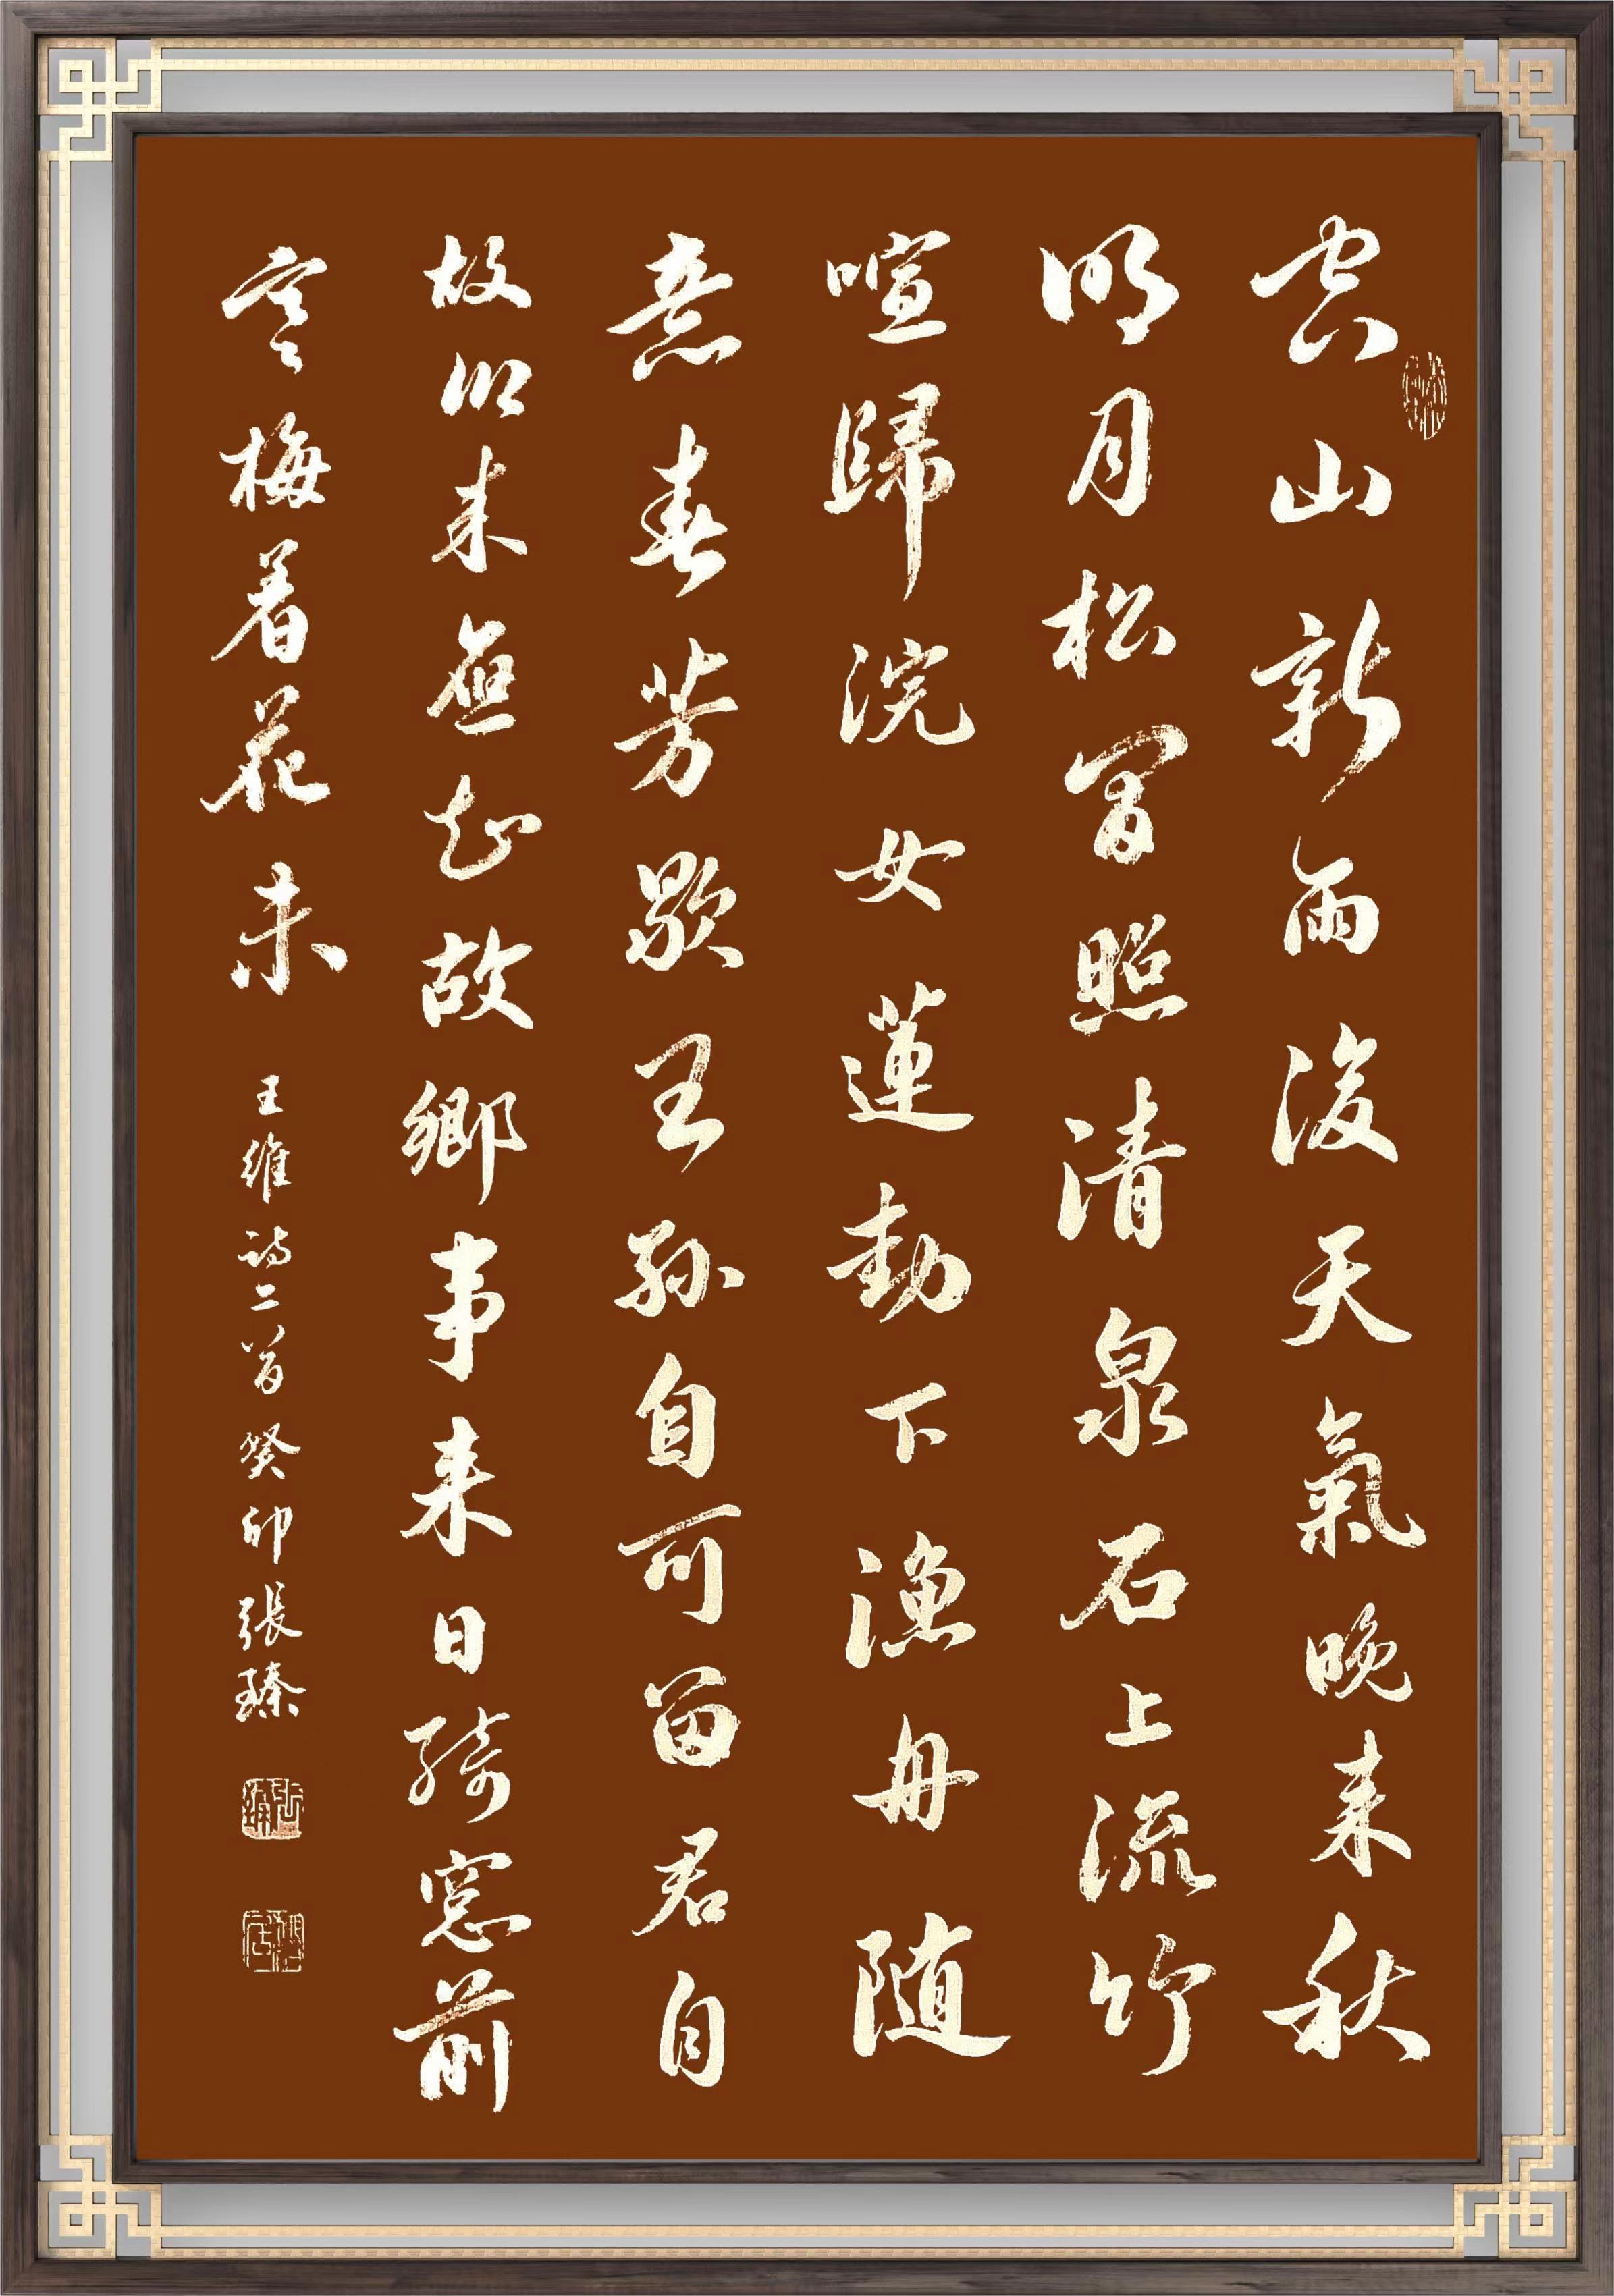 空山新雨後天氣晚来秋
明月松間照清泉石上流竹
喧歸浣女蓮動下漁舟随
意春芳歇王孫自可留君自
故鄉来應知故鄉事来日綺窓前
寒梅着花未
王維詩二首癸卯張臻